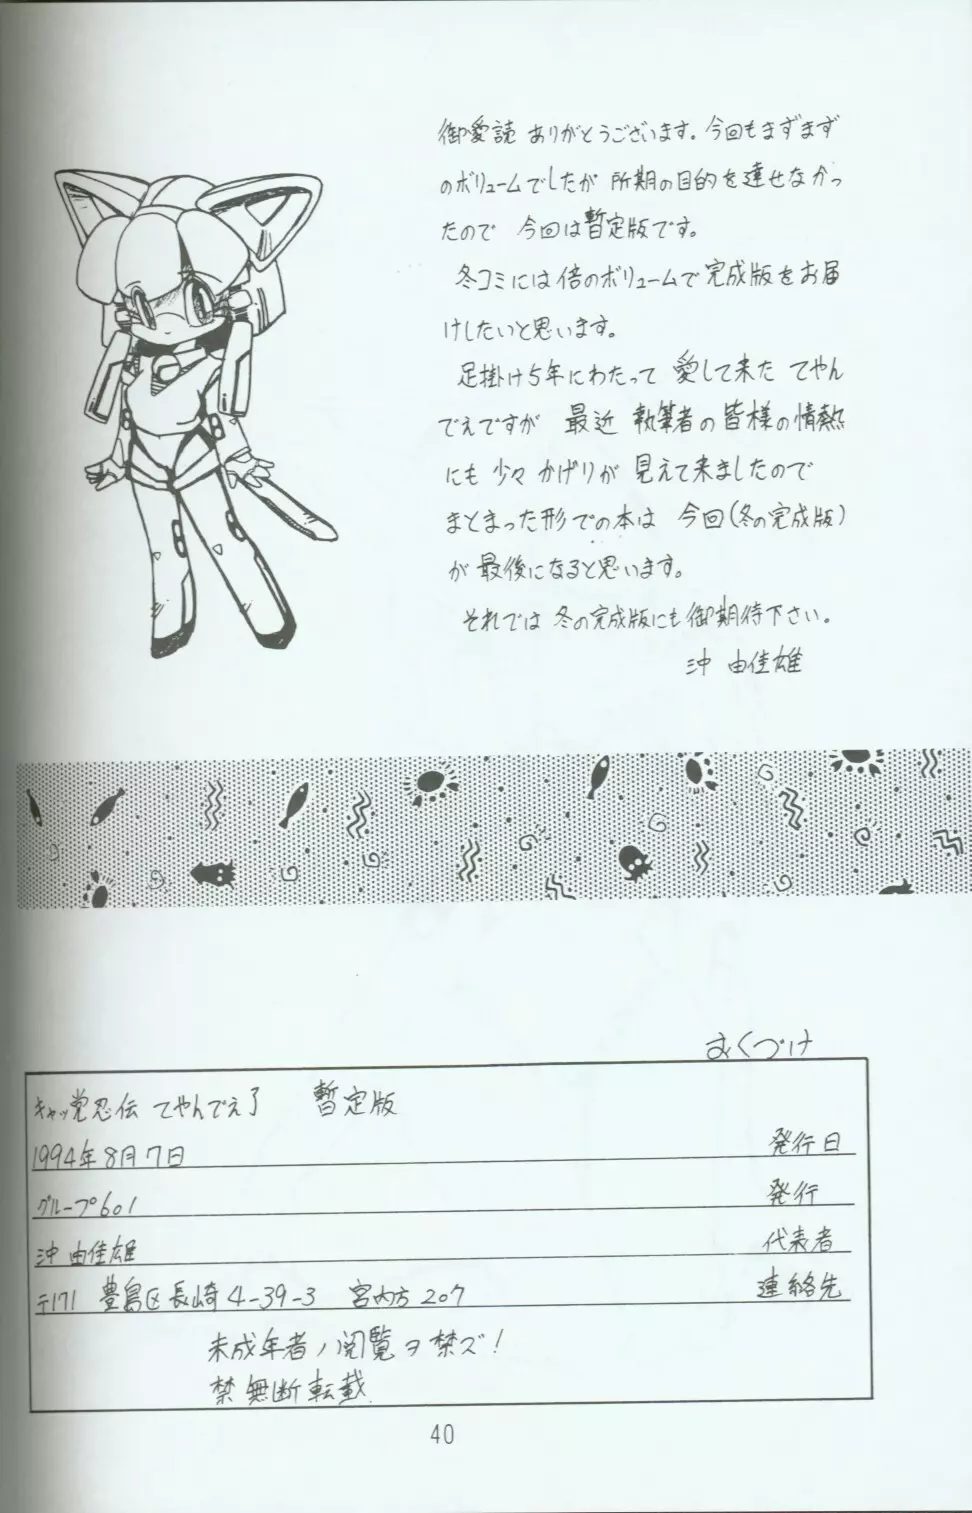 御愛読 ありがとうございます。今回もまずまず
のボリュームでしたが 所期の目的を達せなかっ
たので 今回は暫定版です。
冬コミには倍のボリュームで完成版をお届
けしたいと思います。
足掛け5年にわたって 愛して来た てやん
でえですが 最近 執筆者の皆様の情熱
にも 少々 かげりが 見えて来ましたので
まとまった形での本は 今回(冬の完成版)
が 最後になると思います。
それでは 冬の完成版にも御期待下さい。
沖 由佳雄
おくづけ
キャッ党忍伝 てやんでえ3 暫定版
1994年8月7日 発行日
グループ601 発行
沖 由佳雄 代表者
〒171 豊島区長崎4-39-3 宮内方207 連絡先
未成年者ノ閲覧ヲ禁ズ!
禁無断転載
40